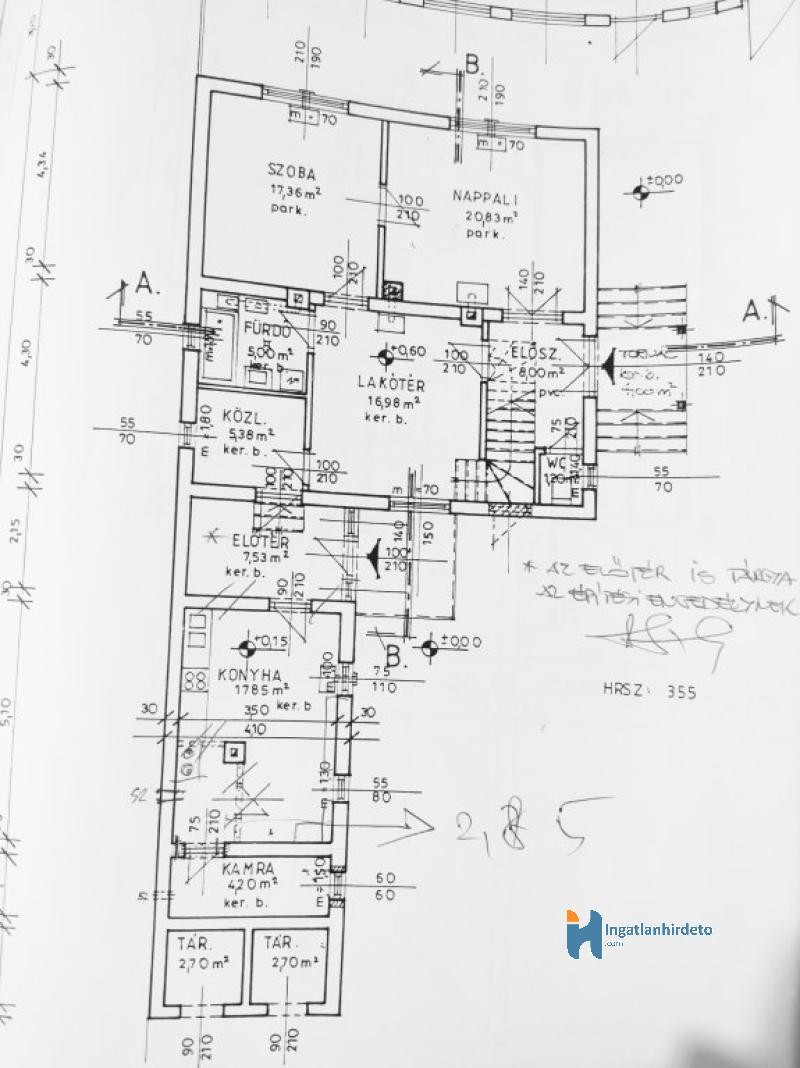 210
190
B
210
190
m 70
m 70
4,34
SZOBA
17,36 m²
park.
100
210
NAPPALI
20,83 m²
park.
±0,00
30
100
210
140
210
A.
A.
55
70
FÜRDŐ
5,00 m²
ker. b.
90
210
+0,60
100
210
ELŐSZ.
8,00 m²
pvc.
140
210
4,30
LAKÓTÉR
16,98 m²
ker. b.
55
70
KÖZL.
5,38 m²
ker. b.
m = 1,80
75
210
WC
1,20 m²
55
70
30
100
210
100
210
m 70
140
150
2,15
ELŐTÉR
7,53 m²
ker. b.
100
210
* AZ ELŐTÉR IS TÁRGYA
AZ ÉPÍTÉSI ENGEDÉLYNEK
30
90
210
+0,15
B.
±0,00
KONYHA
17,85 m²
ker. b
m 100
75
110
HRSZ: 355
30
350
30
410
5,10
m 130
55
80
2,85
75
210
KAMRA
4,20 m²
ker. b.
60
60
TÁR.
2,70 m²
TÁR.
2,70 m²
90
210
90
210
Ingatlanhirdeto
.com